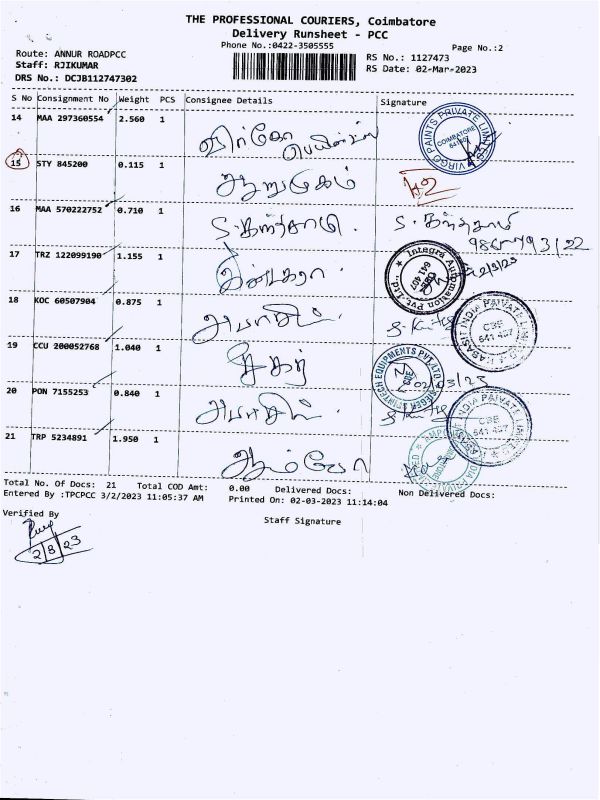 THE PROFESSIONAL COURIERS, Coimbatore
Delivery Runsheet - PCC
Phone No.:0422-3505555
Page No.:2
Route: ANNUR ROADPCC
Staff: RJIKUMAR
DRS No.: DCJB112747302
RS No.: 1127473
RS Date: 02-Mar-2023
S No Consignment No Weight PCS Consignee Details Signature
14 MAA 297360554 2.560 1
VIRGO PAINTS PRIVATE LIMITED COIMBATORE 641 407
15 STY 845200 0.115 1 ஆறுமுகம்
16 MAA 570222752 0.710 1 S. கந்தசாமி. S. கந்தசாமி
17 TRZ 122099190 1.155 1
Integra Automation Pvt. Ltd. 641 407
18 KOC 60507904 0.875 1
INDIA PRIVATE LIMITED CBE 641 407
19 CCU 200052768 1.040 1 சேகர்
EQUIPMENTS PVT LTD CBE
02/03/23
20 PON 7155253 0.840 1
INDIA PRIVATE LIMITED CBE 641 407
21 TRP 5234891 1.950 1
Total No. Of Docs: 21 Total COD Amt: 0.00 Delivered Docs: Non Delivered Docs:
Entered By :TPCPCC 3/2/2023 11:05:37 AM Printed On: 02-03-2023 11:14:04
Verified By
Staff Signature